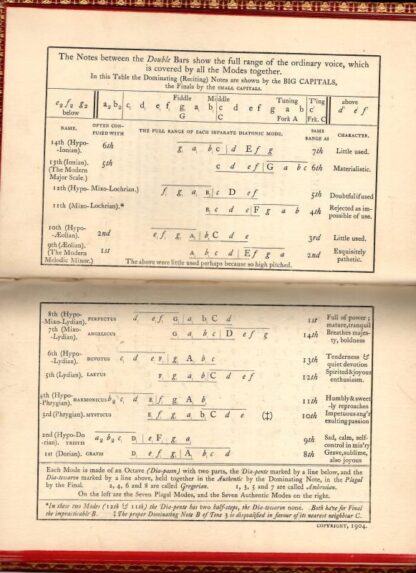 The Notes between the Double Bars show the full range of the ordinary voice, which
is covered by all the Modes together.
In this Table the Dominating (Reciting) Notes are shown by the BIG CAPITALS,
the Finals by the SMALL CAPITALS.
Fiddle Middle Tuning T'ing above
e₂ f₂ g₂ a₂ b₂ c, d, e, f, g, a, b, c d e f g a b c' d' e' f'
below G C Fork A Frk. C
NAME. OFTEN CONFUSED WITH THE FULL RANGE OF EACH SEPARATE DIATONIC MODE. SAME RANGE AS CHARACTER.
14th (Hypo-Ionian). 6th g, a, b, c | d E f g 7th Little used.
13th (Ionian). 5th c d e f | G a b c' 6th Materialistic.
(The Modern
Major Scale.)
12th (Hypo-Mixo-Lochrian.) f, g, a, B, | c D e f 5th Doubtful if used
11th (Mixo-Lochrian).* B, c d e | F g a b 4th Rejected as impossible of use.
10th (Hypo-Æolian). 2nd e, f, g, A, | b, C d e 3rd Little used.
9th (Æolian). 1st A, b, c d | E f g a 2nd Exquisitely pathetic.
(The Modern
Melodic Minor.)
The above were little used perhaps because so high pitched.
8th (Hypo-Mixo-Lydian). PERFECTUS d, e, f, G, | a, b, C d 1st Full of power; mature, tranquil
7th (Mixo-Lydian). ANGELICUS G, a, b, c | D e f g 14th Breathes majesty, boldness
6th (Hypo-Lydian). DEVOTUS c, d, e, F, | g, A, b, c 13th Tenderness & quiet devotion
5th (Lydian). LAETUS F, g, a, b, | C d e f 12th Spirited & joyous enthusiasm.
4th (Hypo-Phrygian). HARMONICUS b₂ c, d, E, | f, g, A, b, 11th Humbly & sweetly reproaches
3rd (Phrygian). MYSTICUS E, f, g, a, | b, C d e (‡) 10th Impetuous ang'r exulting passion
2nd (Hypo-Dorian). TRISTIS a₂ b₂ c, D, | e, F, g, a, 9th Sad, calm, self-control in min'ty
1st (Dorian). GRAVIS D, e, f, g, | A, b, c d 8th Grave, sublime, also joyous
Each Mode is made of an Octave (Dia-pason) with two parts, the Dia-pente marked by a line below, and the
Dia-tessaron marked by a line above, held together in the Authentic by the Dominating Note, in the Plagal
by the Final. 2, 4, 6 and 8 are called Gregorian. 1, 3, 5 and 7 are called Ambrosian.
On the left are the Seven Plagal Modes, and the Seven Authentic Modes on the right.
*In these two Modes (12th & 11th) the Dia-pente has two half-steps, the Dia-tessaron none. Both have for Final
the impracticable B. ‡ The proper Dominating Note B of Tone 3 is disqualified in favour of its nearest neighbour C.
COPYRIGHT, 1904.